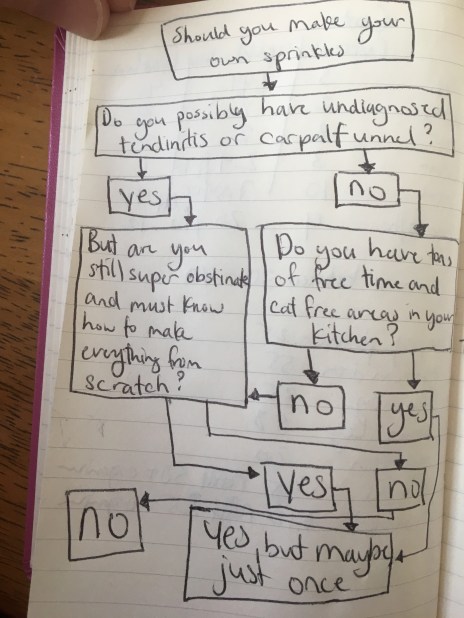 Should you make your
own sprinkles
Do you possibly have undiagnosed
tendinitis or carpalfunnel?
yes
no
But are you
still super obstinate
and must know
how to make
everything from
scratch?
Do you have tons
of free time and
cat free areas in your
kitchen?
no
yes
yes
no
no
yes, but maybe
just once